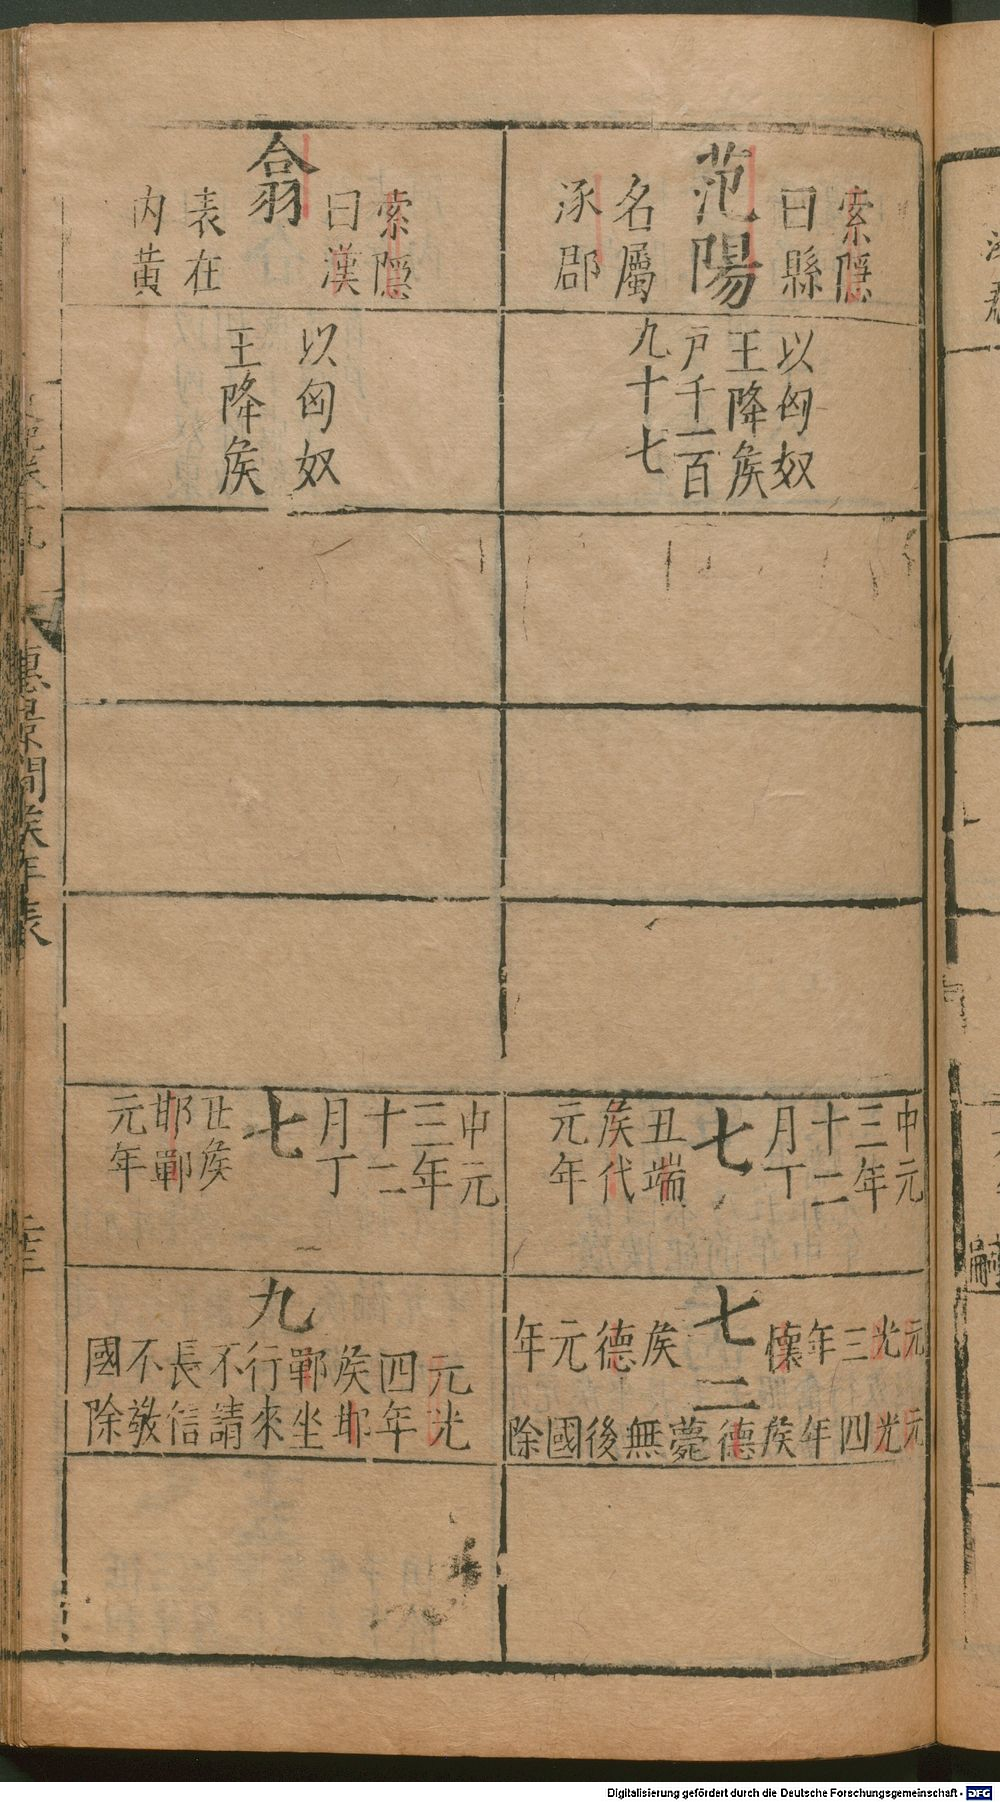 索隱
曰縣
范陽
名屬
涿郡
以匈奴
王降矦
戸千一百
九十七
中元
三年
十二
月丁
七
丑端
矦代
元年
七
元光三年懷
矦德元年
二
元光四年矦德薨無後國除
索隱
曰漢
翕
表在
内黄
以匈奴
王降矦
中元
三年
十二
月丁
七
丑矦
邯鄲
元年
九
元光
四年
矦邯
鄲坐
行來
不請
長信
不敬
國除
惠景間矦年表
Digitalisierung gefördert durch die Deutsche Forschungsgemeinschaft - DFG